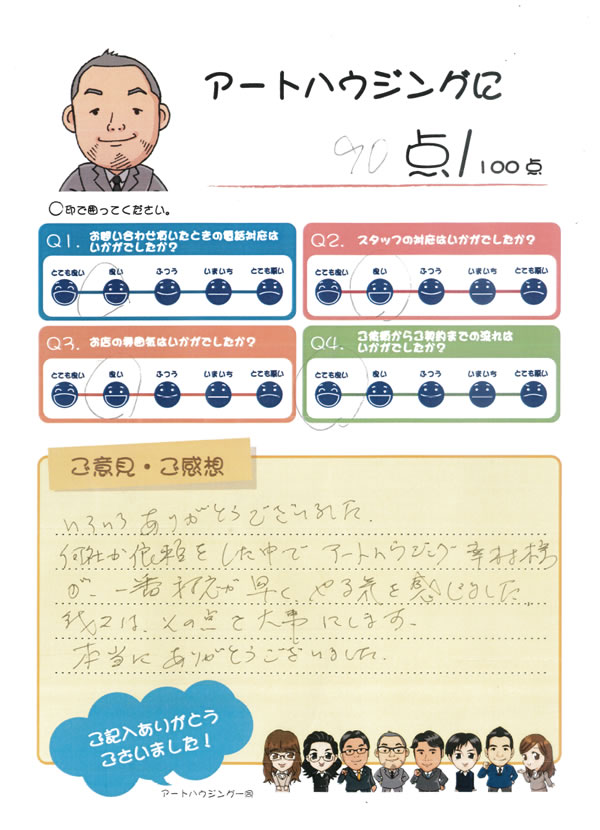 アートハウジングに
90 点/100点
○印で囲ってください。
Q1. お問い合わせ頂いたときの電話対応は
いかがでしたか?
とても良い 良い ふつう いまいち とても悪い
Q2. スタッフの対応はいかがでしたか?
とても良い 良い ふつう いまいち とても悪い
Q3. お店の雰囲気はいかがでしたか?
とても良い 良い ふつう いまいち とても悪い
Q4. ご依頼からご契約までの流れは
いかがでしたか?
とても良い 良い ふつう いまいち とても悪い
ご意見・ご感想
いろいろありがとうございました。
何社か依頼をした中でアートハウジング 幸村様
が、一番対応が早く、やる気を感じました。
は、その点を大事にします。
本当にありがとうございました。
ご記入ありがとう
ございました!
アートハウジング一同